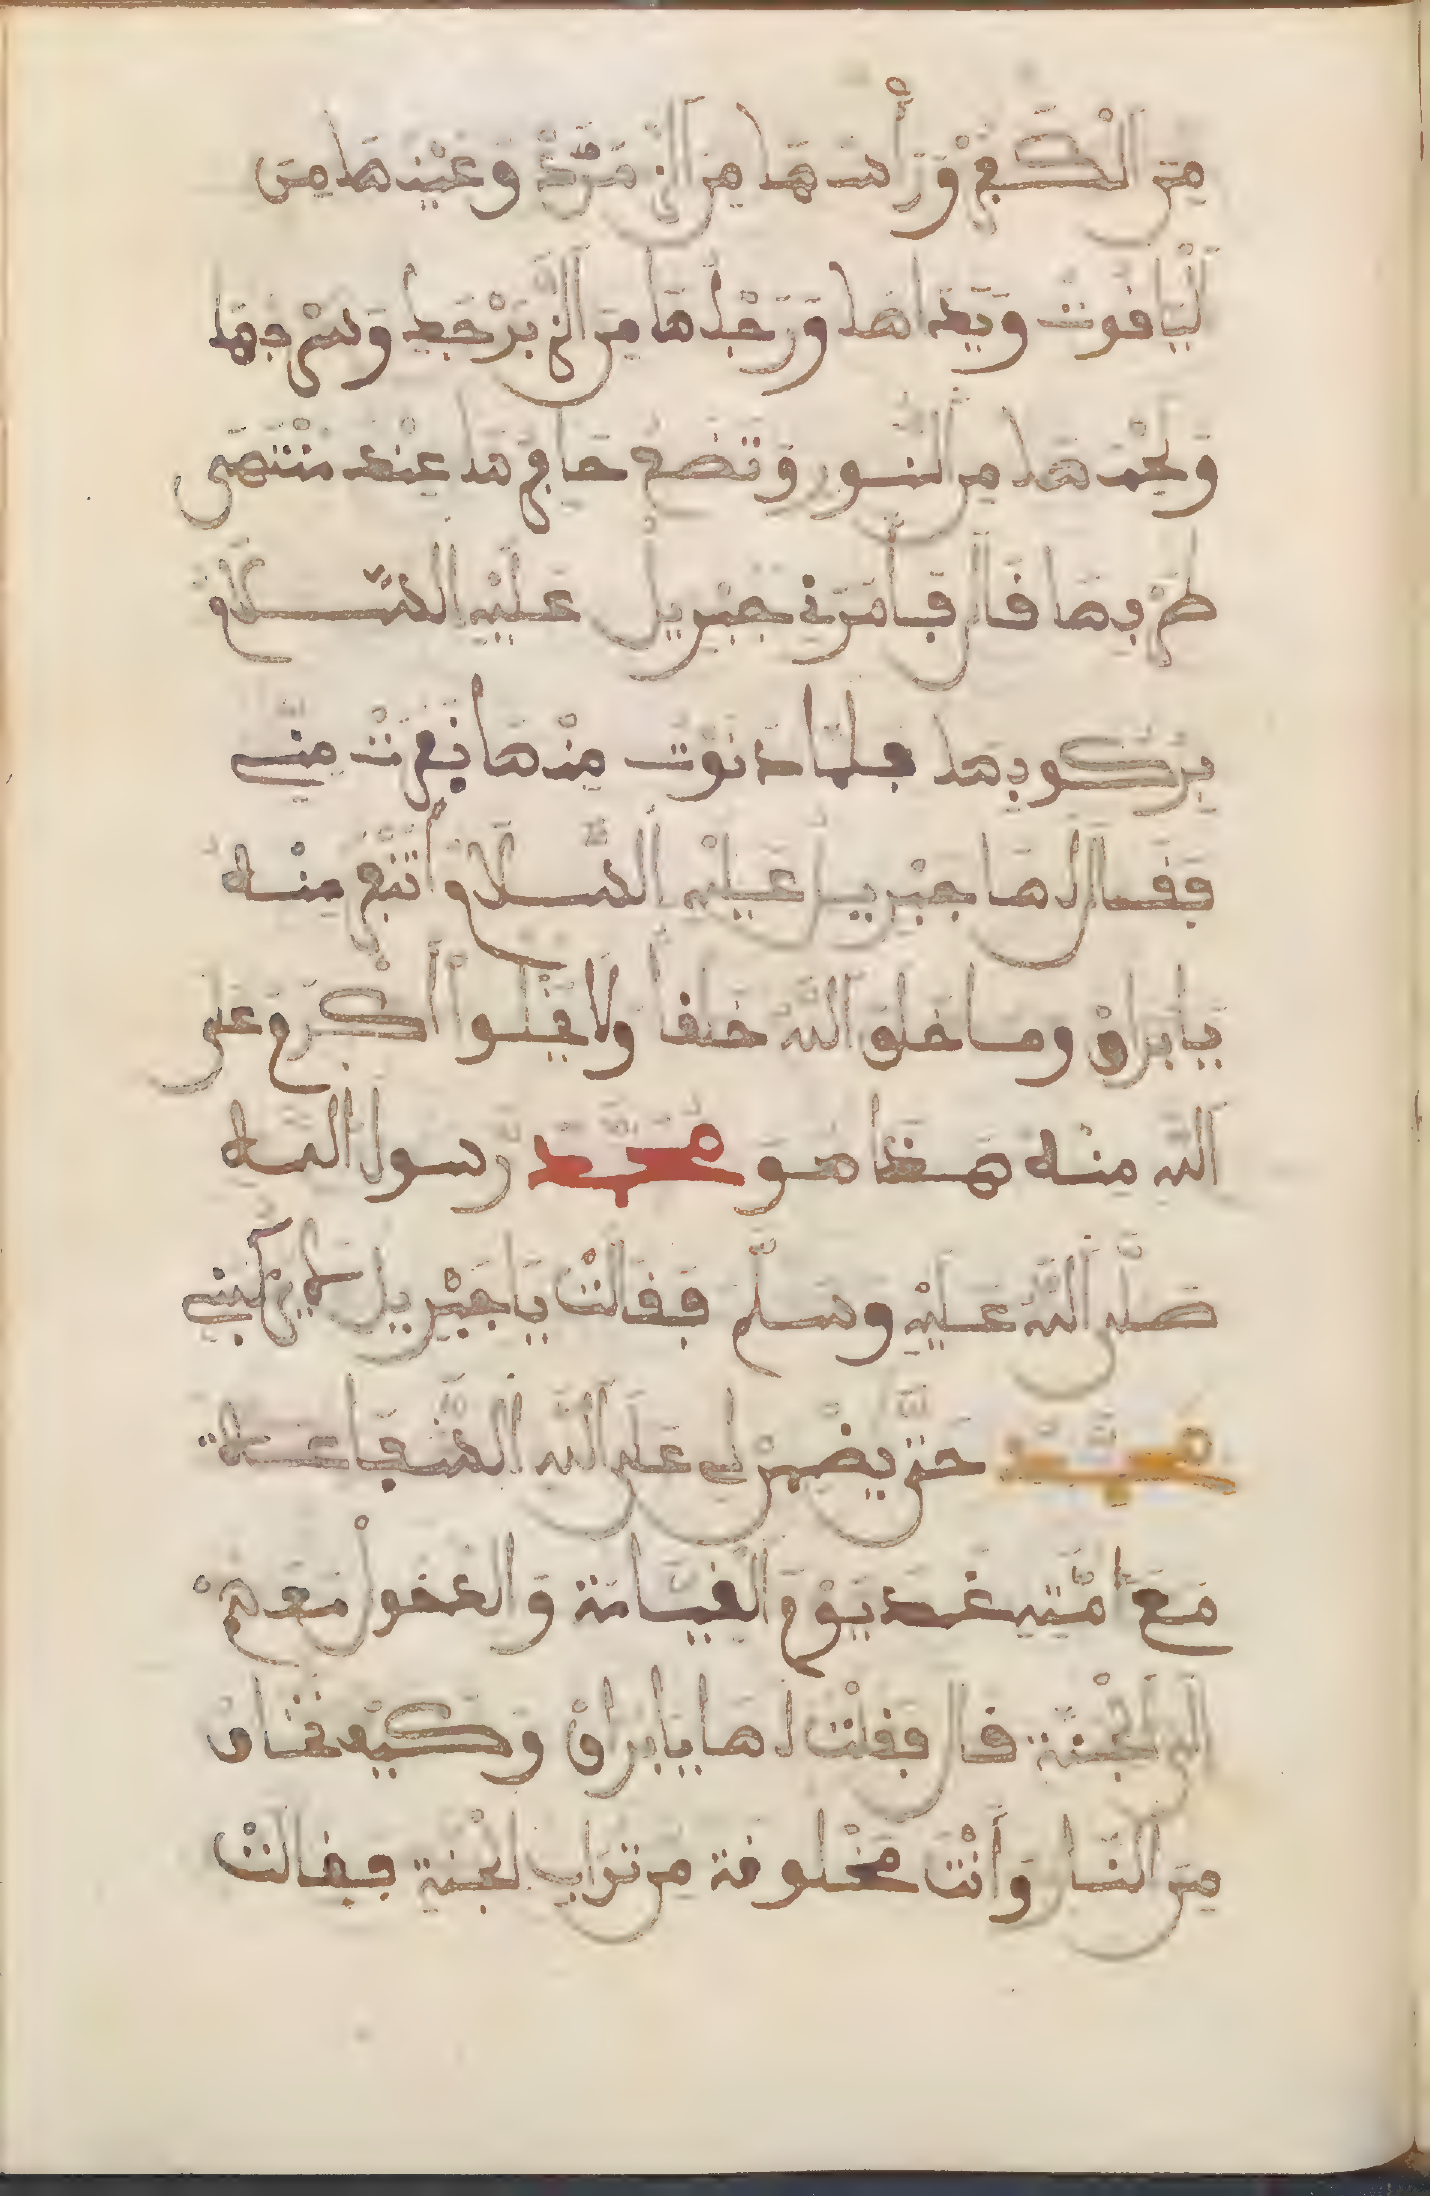 من الكفر ورأسها من الزمرد وعينها من
الياقوت ويداها ورجلاها من الزبرجد وسرجها
ولحمها من النور وتضع حافرها عند منتهى
طرفها قال فأمرني جبريل عليه السلام
بركوبها فلما دنوت منها نفرت مني
فقال لها جبريل عليه السلام أتنفر منه
يا براق وما خلق الله خلقا ولا خلوا أكرم على
الله منه هذا هو محمد رسول الله
صلى الله عليه وسلم فقالت يا جبريل لم يركبني
محمد حتى يضمن لي على الله الشفاعة
مع امته غد يوم القيامة والدخول معهم
الى الجنة قال فقلت لها يا براق وكيف تخاف
من النار وأنت مخلوقة من تراب الجنة فقالت